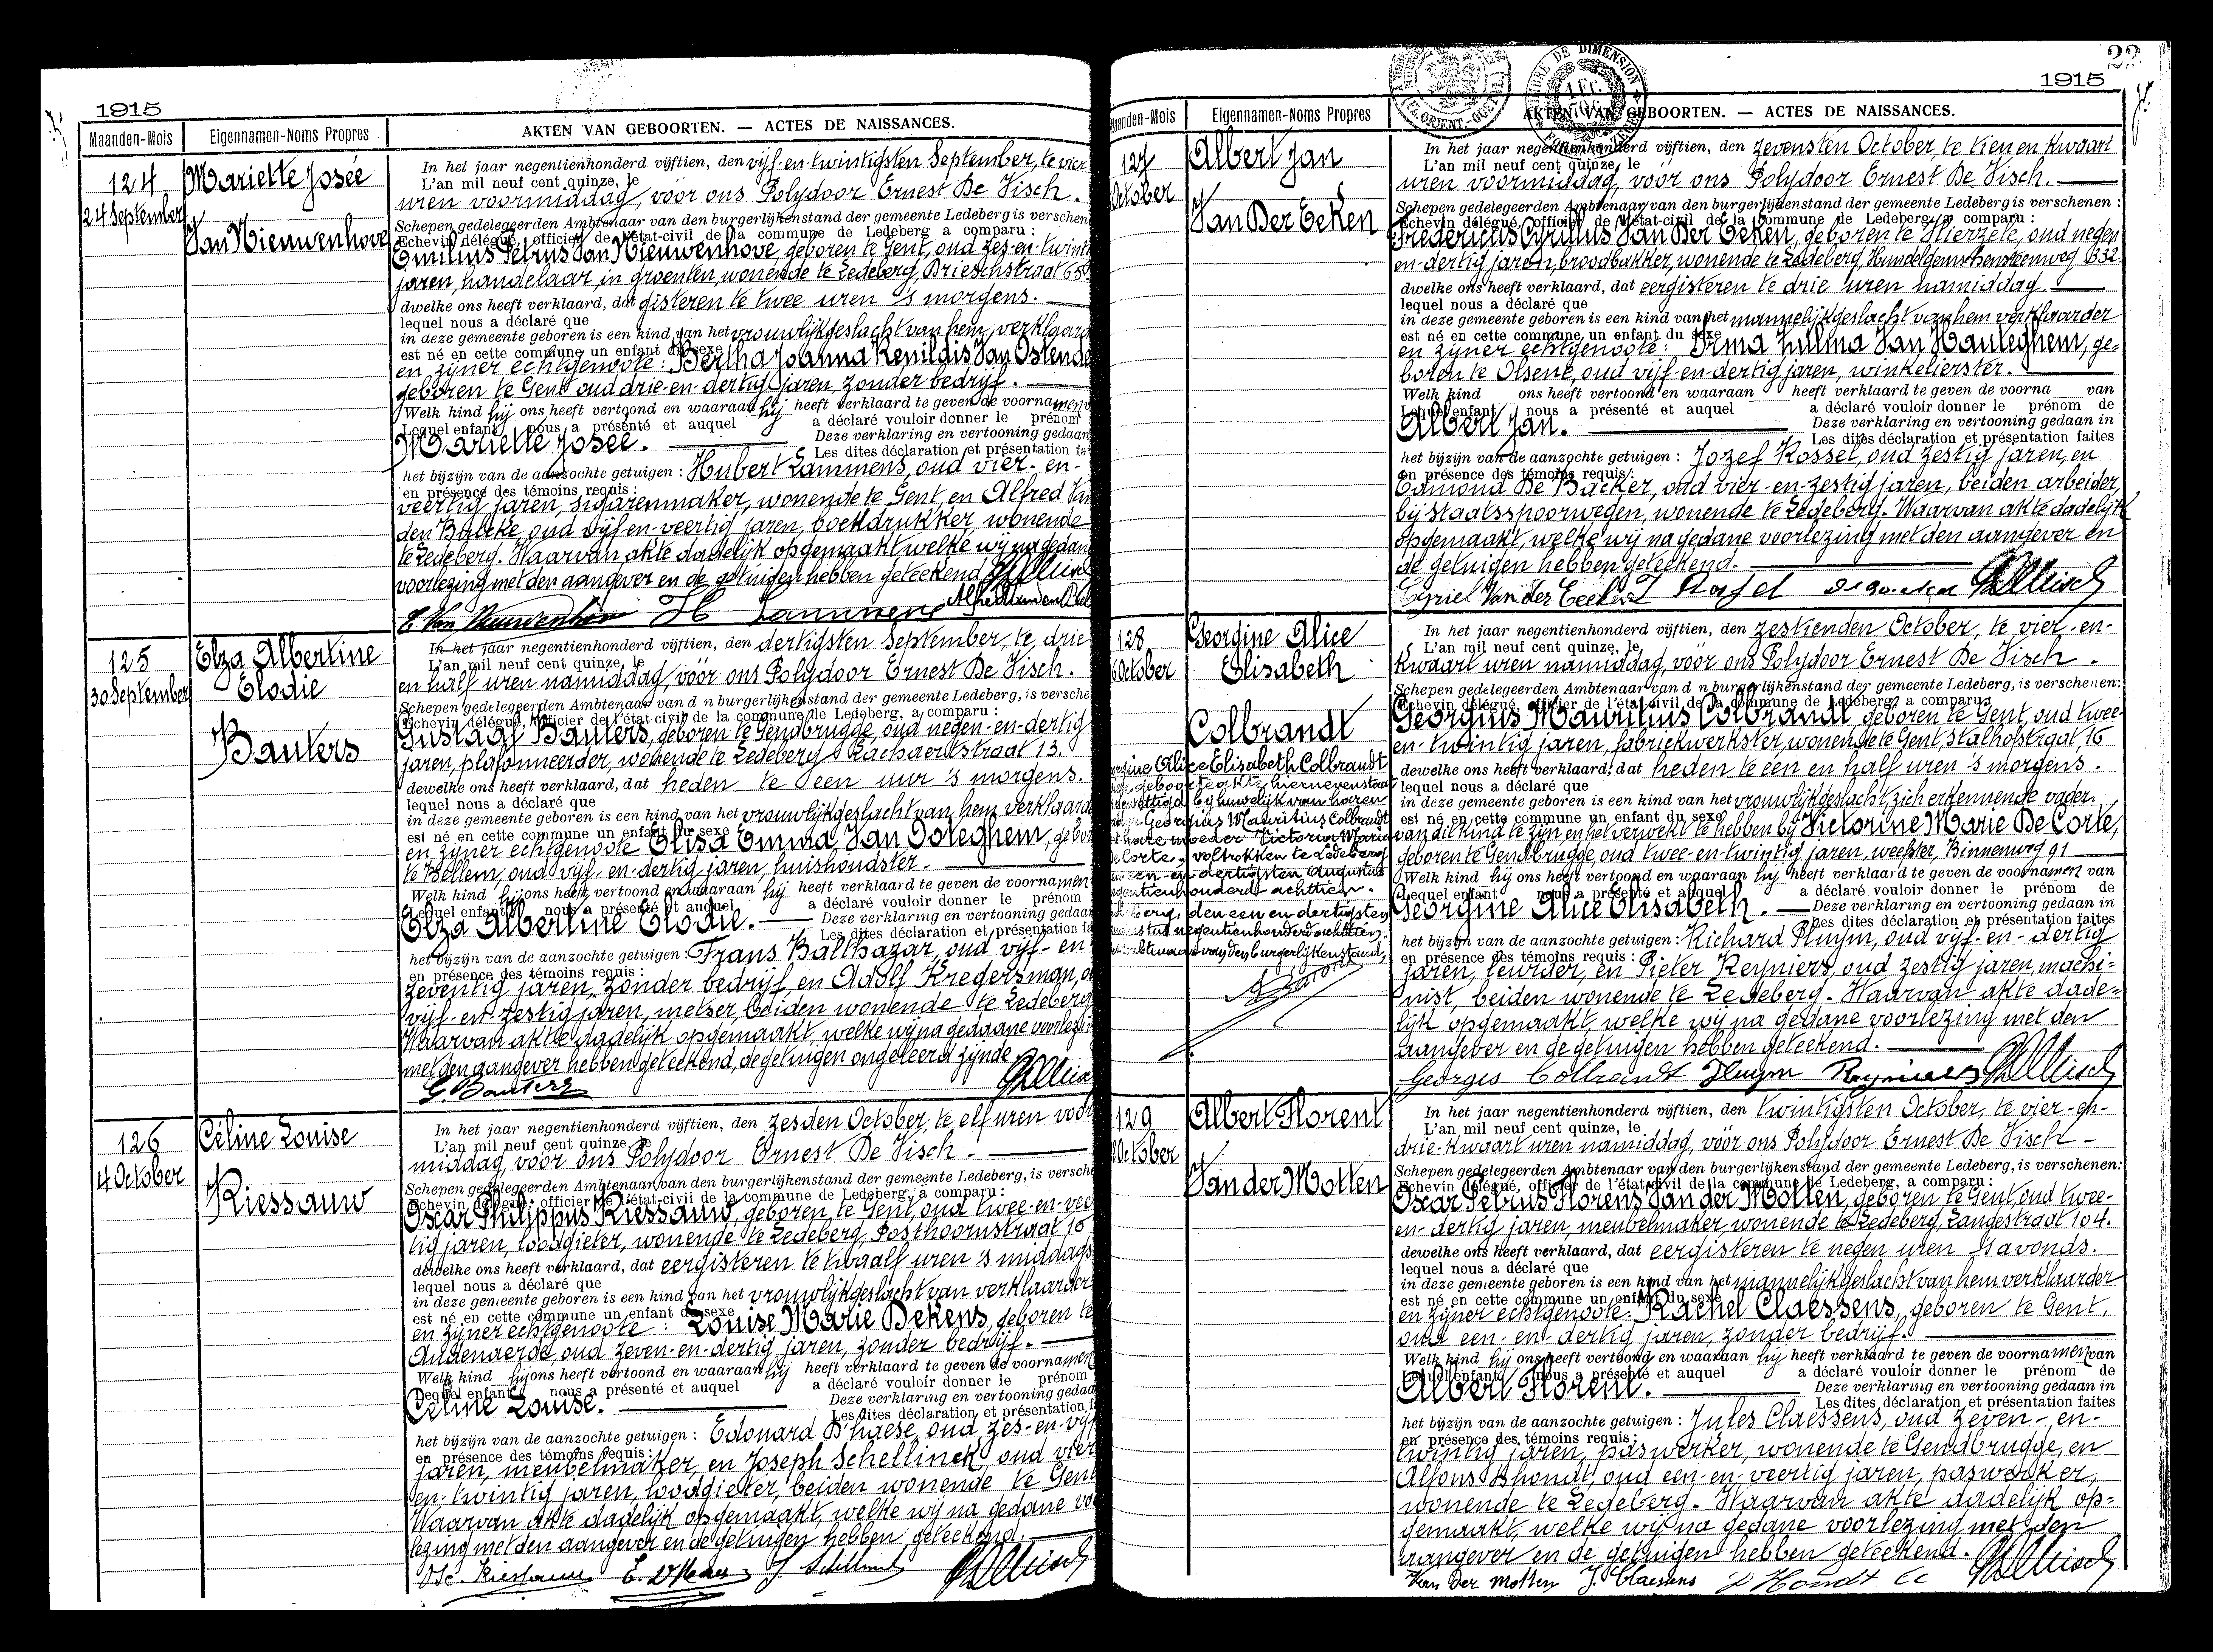 1915
Maanden-Mois Eigennamen-Noms Propres AKTEN VAN GEBOORTEN. — ACTES DE NAISSANCES.
124
24 September
Mariette Josée
Van Nieuwenhove
In het jaar negentienhonderd vijftien, den vijf-en-twintigsten September, te vier
L'an mil neuf cent quinze, le
uren voormiddag, vóór ons Polydoor Ernest De Visch.
Schepen gedelegeerden Ambtenaar van den burgerlijkenstand der gemeente Ledeberg is verschen
Echevin délégué, officier de l'état-civil de la commune de Ledeberg a comparu :
Emilius Petrus Van Nieuwenhove, geboren te Gent, oud zes-en-twint
jaren, handelaar in groenten, wonende te Ledeberg, Drieschstraat 65
dwelke ons heeft verklaard, dat gisteren te twee uren 's morgens.
lequel nous a déclaré que
in deze gemeente geboren is een kind van het vrouwlijkgeslacht van hem, verklaard
est né en cette commune un enfant du sexe
en zijner echtgenoote : Bertha Joanna Renildis Van Ostende
geboren te Gent oud drie-en-dertig jaren, zonder bedrijf.
Welk kind hij ons heeft vertoond en waaraan hij heeft verklaard te geven de voornamen
Lequel enfant nous a présenté et auquel a déclaré vouloir donner le prénom
Mariette Josée. Deze verklaring en vertooning gedaan
Les dites déclaration et présentation fa
het bijzijn van de aanzochte getuigen : Hubert Lammens, oud vier-en-
en présence des témoins requis :
veertig jaren, sigarenmaker, wonende te Gent, en Alfred Van
den Bulcke, oud vijf-en-veertig jaren, boekdrukker, wonende
te Ledeberg. Waarvan akte dadelijk opgemaakt welke wij na gedane
voorlezing met den aangever en de getuigen hebben geteekend.
E. Van Nieuwenhove H Lammens
125
30 September
Elza Albertine
Elodie
Bauters
In het jaar negentienhonderd vijftien, den dertigsten September, te drie
L'an mil neuf cent quinze, le
en half uren namiddag, vóór ons Polydoor Ernest De Visch.
Schepen gedelegeerden Ambtenaar van d n burgerlijkenstand der gemeente Ledeberg, is versche
Echevin délégué, officier de l'état-civil de la commune de Ledeberg, a comparu :
Gustaaf Bauters, geboren te Gendbrugge, oud negen-en-dertig
jaren, plafonneerder, wonende te Ledeberg, Zachaertstraat 13.
dewelke ons heeft verklaard, dat heden te een uur 's morgens.
lequel nous a déclaré que
in deze gemeente geboren is een kind van het vrouwlijkgeslacht van hem verklaarde
est né en cette commune un enfant du sexe
en zijner echtgenoote Elisa Emma Van Ooteghem, gebor
te Bellem, oud vijf-en-dertig jaren, huishoudster.
Welk kind hij ons heeft vertoond en waaraan hij heeft verklaard te geven de voornamen
Lequel enfant nous a présenté et auquel a déclaré vouloir donner le prénom
Elza Albertine Elodie. Deze verklaring en vertooning gedaan
Les dites déclaration et présentation fa
het bijzijn van de aanzochte getuigen : Frans Balthazar, oud vijf-en
en présence des témoins requis :
zeventig jaren, zonder bedrijf, en Adolf Kregersman, o
vijf-en-zestig jaren, metser, beiden wonende te Ledeberg
Waarvan akte dadelijk opgemaakt, welke wij na gedaane voorlezi
met den aangever hebben geteekend, de getuigen ongeleerd zijnde.
G. Bauters
126
4 October
Céline Louise
Riessauw
In het jaar negentienhonderd vijftien, den zesden October, te elf uren voor
L'an mil neuf cent quinze, le
middag, vóór ons Polydoor Ernest De Visch.
Schepen gedelegeerden Ambtenaar van den burgerlijkenstand der gemeente Ledeberg, is versche
Echevin délégué, officier de l'état-civil de la commune de Ledeberg, a comparu :
Oscar Philippus Riessauw, geboren te Gent, oud twee-en-vee
tig jaren, loodgieter, wonende te Ledeberg, Posthoornstraat 16
dewelke ons heeft verklaard, dat eergisteren te twaalf uren 's middags
lequel nous a déclaré que
in deze gemeente geboren is een kind van het vrouwlijkgeslacht van verklaarder
est né en cette commune un enfant du sexe
en zijner echtgenoote : Louise Marie Dekens, geboren te
Audenaerde, oud zeven-en-dertig jaren, zonder bedrijf.
Welk kind hij ons heeft vertoond en waaraan hij heeft verklaard te geven de voornamen
Lequel enfant nous a présenté et auquel a déclaré vouloir donner le prénom
Céline Louise. Deze verklaring en vertooning gedaa
Les dites déclaration et présentation f
het bijzijn van de aanzochte getuigen : Edouard D'haese, oud zes-en-vijf
en présence des témoins requis :
jaren, meubelmaker, en Joseph Schellinck oud vier
en-twintig jaren, loodgieter, beiden wonende te Gent
Waarvan akte dadelijk opgemaakt, welke wij na gedane vo
lezing met den aangever en de getuigen hebben geteekend.
Osc. Riessauw E. D'Haese J. Schellinck
22
1915
TIMBRE DE DIMENSION
1 Fr.
anden-Mois Eigennamen-Noms Propres AKTEN VAN GEBOORTEN. — ACTES DE NAISSANCES.
127
October
Albert Jan
Van Der Eeken
In het jaar negentienhonderd vijftien, den zevensten October, te tien en kwaart
L'an mil neuf cent quinze, le
uren voormiddag, vóór ons Polydoor Ernest De Visch.
Schepen gedelegeerden Ambtenaar van den burgerlijkenstand der gemeente Ledeberg is verschenen :
Echevin délégué, officier de l'état-civil de la commune de Ledeberg, a comparu :
Fredericus Cyrillus Van Der Eeken, geboren te Hierzele, oud negen
en-dertig jaren, broodbakker, wonende te Ledeberg, Hundelgemschensteenweg 332.
dwelke ons heeft verklaard, dat eergisteren te drie uren namiddag.
lequel nous a déclaré que
in deze gemeente geboren is een kind van het mannelijkgeslacht van hem verklaarder
est né en cette commune un enfant du sexe
en zijner echtgenoote : Irma Zulma Van Hauteghem, ge-
boren te Olsene, oud vijf-en-dertig jaren, winkelierster.
Welk kind ons heeft vertoond en waaraan heeft verklaard te geven de voorna van
Lequel enfant nous a présenté et auquel a déclaré vouloir donner le prénom de
Albert Jan. Deze verklaring en vertooning gedaan in
Les dites déclaration et présentation faites
het bijzijn van de aanzochte getuigen : Jozef Rossel, oud zestig jaren, en
en présence des témoins requis :
Edmond De Backer, oud vier-en-zestig jaren, beiden arbeider
bij staatsspoorwegen, wonende te Ledeberg. Waarvan akte dadelijk
opgemaakt, welke wij na gedane voorlezing met den aangever en
de getuigen hebben geteekend.
Cyriel Van der Eeken J Rossel
128
October
Georgine Alice
Elisabeth
Colbrandt
Alice Elisabeth Colbrandt
geboorteakte hiernevenstaat
gewettigd bij huwelijk van haren
Georgius Mauritius Colbrandt
hare moeder Victorine Marie
De Corte, voltrokken te Ledeberg
een-en-dertigsten Augustus
negentienhonderd achttien.
den een en dertigsten
negentienhonderd achttien.
van den burgerlijkenstand,
In het jaar negentienhonderd vijftien, den zestienden October, te vier-en-
L'an mil neuf cent quinze, le
kwaart uren namiddag, vóór ons Polydoor Ernest De Visch.
Schepen gedelegeerden Ambtenaar van d n burgerlijkenstand der gemeente Ledeberg, is verschenen:
Echevin délégué, officier de l'état-civil de la commune de Ledeberg a comparu :
Georgius Mauritius Colbrandt, geboren te Gent, oud twee-
en-twintig jaren, fabriekwerkster, wonende te Gent, Stalhofstraat, 16
dewelke ons heeft verklaard, dat heden te een en half uren 's morgens.
lequel nous a déclaré que
in deze gemeente geboren is een kind van het vrouwlijkgeslacht, zich erkennende vader
est né en cette commune un enfant du sexe
van dit kind te zijn, en het verwekt te hebben bij Victorine Marie De Corte,
geboren te Gendbrugge, oud twee-en-twintig jaren, weefster, Binnenweg 91
Welk kind hij ons heeft vertoond en waaraan hij heeft verklaard te geven de voornamen van
Lequel enfant nous a présenté et auquel a déclaré vouloir donner le prénom de
Georgine Alice Elisabeth. Deze verklaring en vertooning gedaan in
Les dites déclaration et présentation faites
het bijzijn van de aanzochte getuigen : Richard Pluym, oud vijf-en-dertig
en présence des témoins requis :
jaren, leurder, en Pieter Reyniers, oud zestig jaren, machi-
nist, beiden wonende te Ledeberg. Waarvan akte dade-
lijk opgemaakt, welke wij na gedane voorlezing met den
aangever en de getuigen hebben geteekend.
Georges Colbrandt Pluym Reyniers
129
October
Albert Florent
Van der Motten
In het jaar negentienhonderd vijftien, den twintigsten October, te vier-en-
L'an mil neuf cent quinze, le
drie-kwaart uren namiddag, vóór ons Polydoor Ernest De Visch
Schepen gedelegeerden Ambtenaar van den burgerlijkenstand der gemeente Ledeberg, is verschenen:
Echevin délégué, officier de l'état-civil de la commune de Ledeberg, a comparu :
Oscar Petrus Florens Van der Motten, geboren te Gent, oud twee-
en-dertig jaren, meubelmaker, wonende te Ledeberg, Langestraat 104.
dewelke ons heeft verklaard, dat eergisteren te negen uren 's avonds.
lequel nous a déclaré que
in deze gemeente geboren is een kind van het mannelijkgeslacht van hem verklaarder
est né en cette commune un enfant du sexe
en zijner echtgenoote : Rachel Claessens, geboren te Gent,
oud een-en-dertig jaren, zonder bedrijf.
Welk kind hij ons heeft vertoond en waaraan hij heeft verklaard te geven de voornamen van
Lequel enfant nous a présenté et auquel a déclaré vouloir donner le prénom de
Albert Florent. Deze verklaring en vertooning gedaan in
Les dites déclaration et présentation faites
het bijzijn van de aanzochte getuigen : Jules Claessens, oud zeven-en-
en présence des témoins requis :
twintig jaren, paswerker, wonende te Gendbrugge, en
Alfons D'hondt, oud een-en-veertig jaren, paswerker,
wonende te Ledeberg. Waarvan akte dadelijk op-
gemaakt, welke wij na gedane voorlezing met den
aangever en de getuigen hebben geteekend.
Van Der Motten J. Claessens D'Hondt